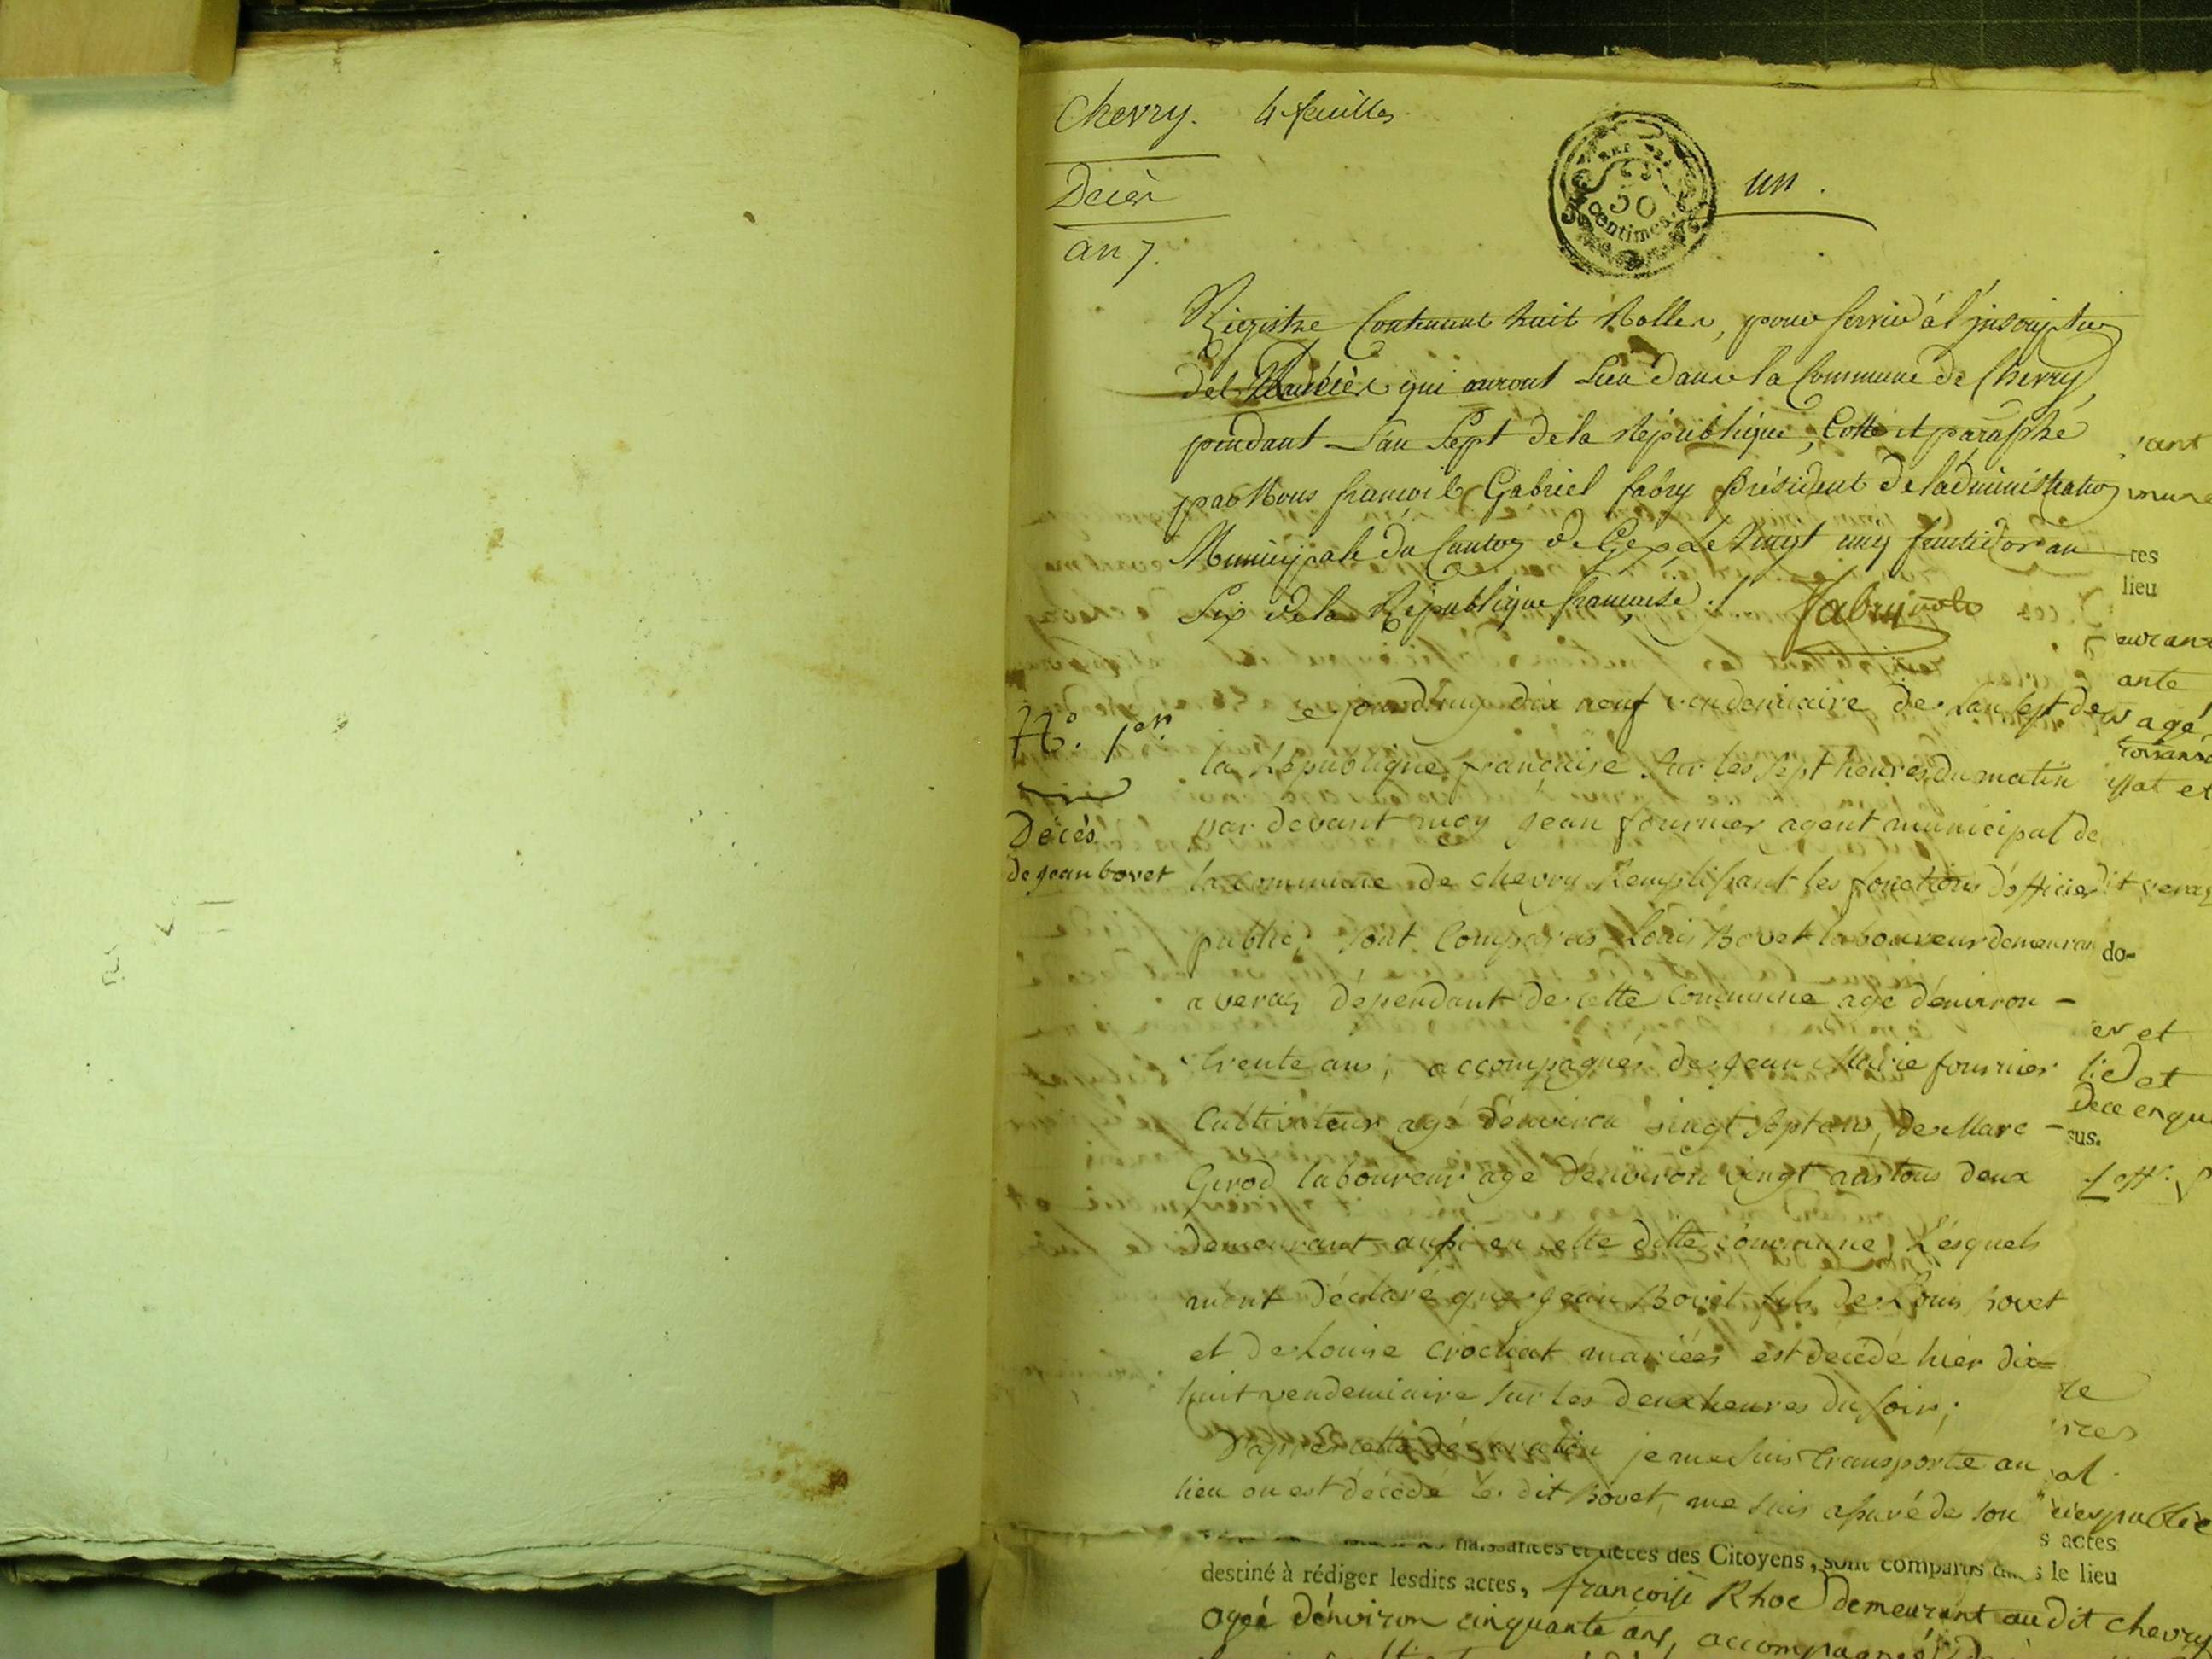 Chevry. 4 feuilles
Décès
an 7.
50
Centimes.
un.
Registre Contenant huit Rolles, pour servir à l'inscription
des Décès qui auront Lieu dans la Commune de Chevry,
pendant L'an Sept de la République, Cotté et paraphé
par Nous françois Gabriel fabry Président de l'administration
Municipale du Canton de Gex, Le Vingt cinq fructidor an
Six de la République française./. Fabry
N.º 1er
Décès
de jean bovet
Ce jourd'huy dix neuf vendemiaire de Lan sept de
la République française sur les sept heures du matin
par devant moy jean fournier agent municipal de
la commune de chevry Remplissant les fonctions d'officier
public, sont Comparus Louis Bovet laboureur demeurant
a veraz dépendant de cette Commune agé d'environ -
trente ans, accompagnés de jean Marie fournier
Cultivateur agé d'environ vingt sept ans, de Marc -
Girod laboureur agé d'environ vingt ans tous deux
demeurant aussi en cette ditte commune, Lesquels
m'ont déclaré que jean Bovet fils de Louis bovet
et de Louise crochat mariées est décédé hier dix=
huit vendemiaire sur les deux heures du soir;
D'apres cette déclaration je me suis transporté au
lieu ou est décédé le dit Bovet, me suis assuré de son
naissances et décès des Citoyens, sont comparus dans le lieu
destiné à rédiger lesdits actes, françoise Rhoe demeurant audit chevry
agée d'environ cinquante ans, accompagnée
tes
lieu
ante
agé
do-
er et
sus.
s actes